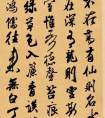 不在高有仙則名
在深有龍則靈斯
室惟吾德馨苔痕
綠草色入簾青談
往來無白丁